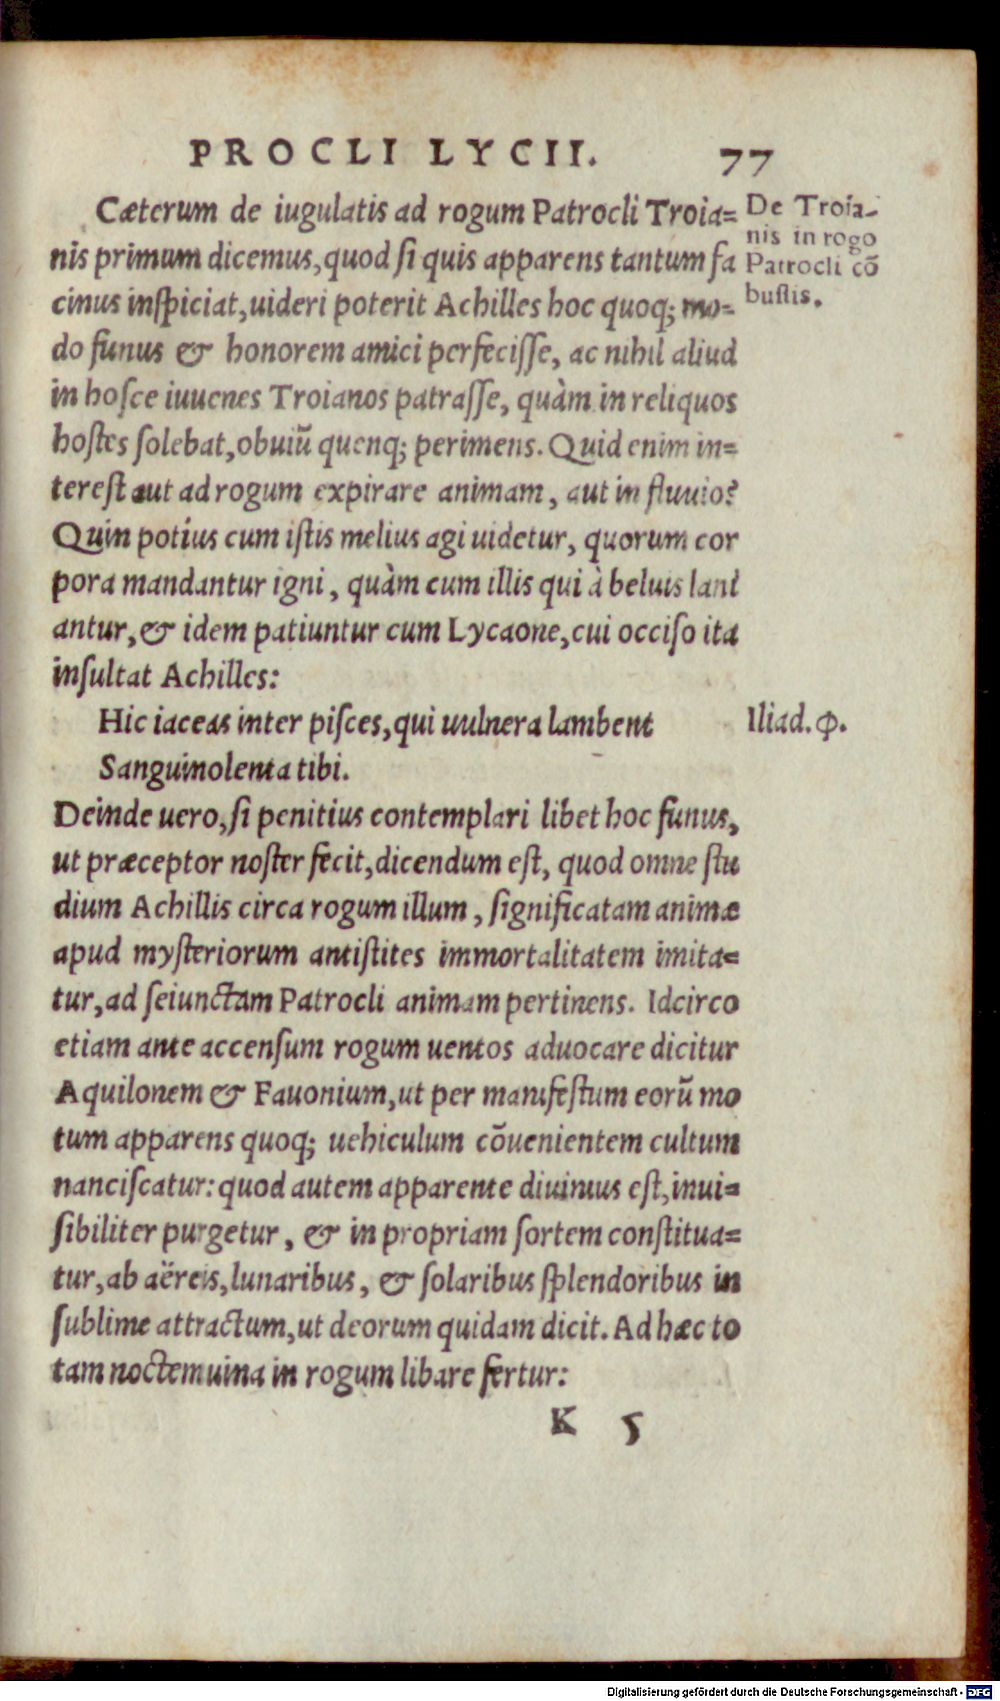 PROCLI LYCII. 77
Cæterum de iugulatis ad rogum Patrocli Troia=
nis primum dicemus, quod si quis apparens tantum fa
cinus inspiciat, uideri poterit Achilles hoc quoq; mo=
do funus & honorem amici perfecisse, ac nihil aliud
in hosce iuuenes Troianos patrasse, quàm in reliquos
hostes solebat, obuiũ quenq; perimens. Quid enim in=
terest aut ad rogum expirare animam, aut in fluuio?
Quin potius cum istis melius agi uidetur, quorum cor
pora mandantur igni, quàm cum illis qui à beluis lani
antur, & idem patiuntur cum Lycaone, cui occiso ita
insultat Achilles:
Hic iaceas inter pisces, qui uulnera lambent
Sanguinolenta tibi.
Deinde uero, si penitius contemplari libet hoc funus,
ut præceptor noster fecit, dicendum est, quod omne stu
dium Achillis circa rogum illum, significatam animæ
apud mysteriorum antistites immortalitatem imita=
tur, ad seiunctam Patrocli animam pertinens. Idcirco
etiam ante accensum rogum uentos aduocare dicitur
Aquilonem & Fauonium, ut per manifestum eorũ mo
tum apparens quoq; uehiculum cõuenientem cultum
nanciscatur: quod autem apparente diuinius est, inui=
sibiliter purgetur, & in propriam sortem constitua=
tur, ab aëreis, lunaribus, & solaribus splendoribus in
sublime attractum, ut deorum quidam dicit. Ad hæc to
tam noctem uina in rogum libare fertur:
K 5
De Troia-
nis in rogo
Patrocli cõ
bustis.
Iliad. φ.
Digitalisierung gefördert durch die Deutsche Forschungsgemeinschaft - DFG